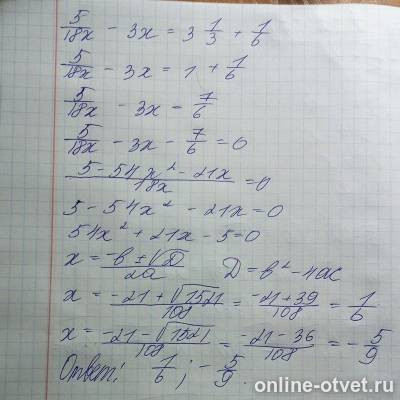 5/18x - 3x = 3 1/3 + 1/6
5/18x - 3x = 1 + 1/6
5/18x - 3x - 7/6
5/18x - 3x - 7/6 = 0
(5 - 54x² - 21x)/18x = 0
5 - 54x² - 21x = 0
54x² + 21x - 5 = 0
x = (-в ± √D)/2a D = в² - 4ac
x = (-21 + √1521)/108 = (-21 + 39)/108 = 1/6
x = (-21 - √1521)/108 = (-21 - 36)/108 = -5/9
Ответ: 1/6 ; -5/9
online-otvet.ru